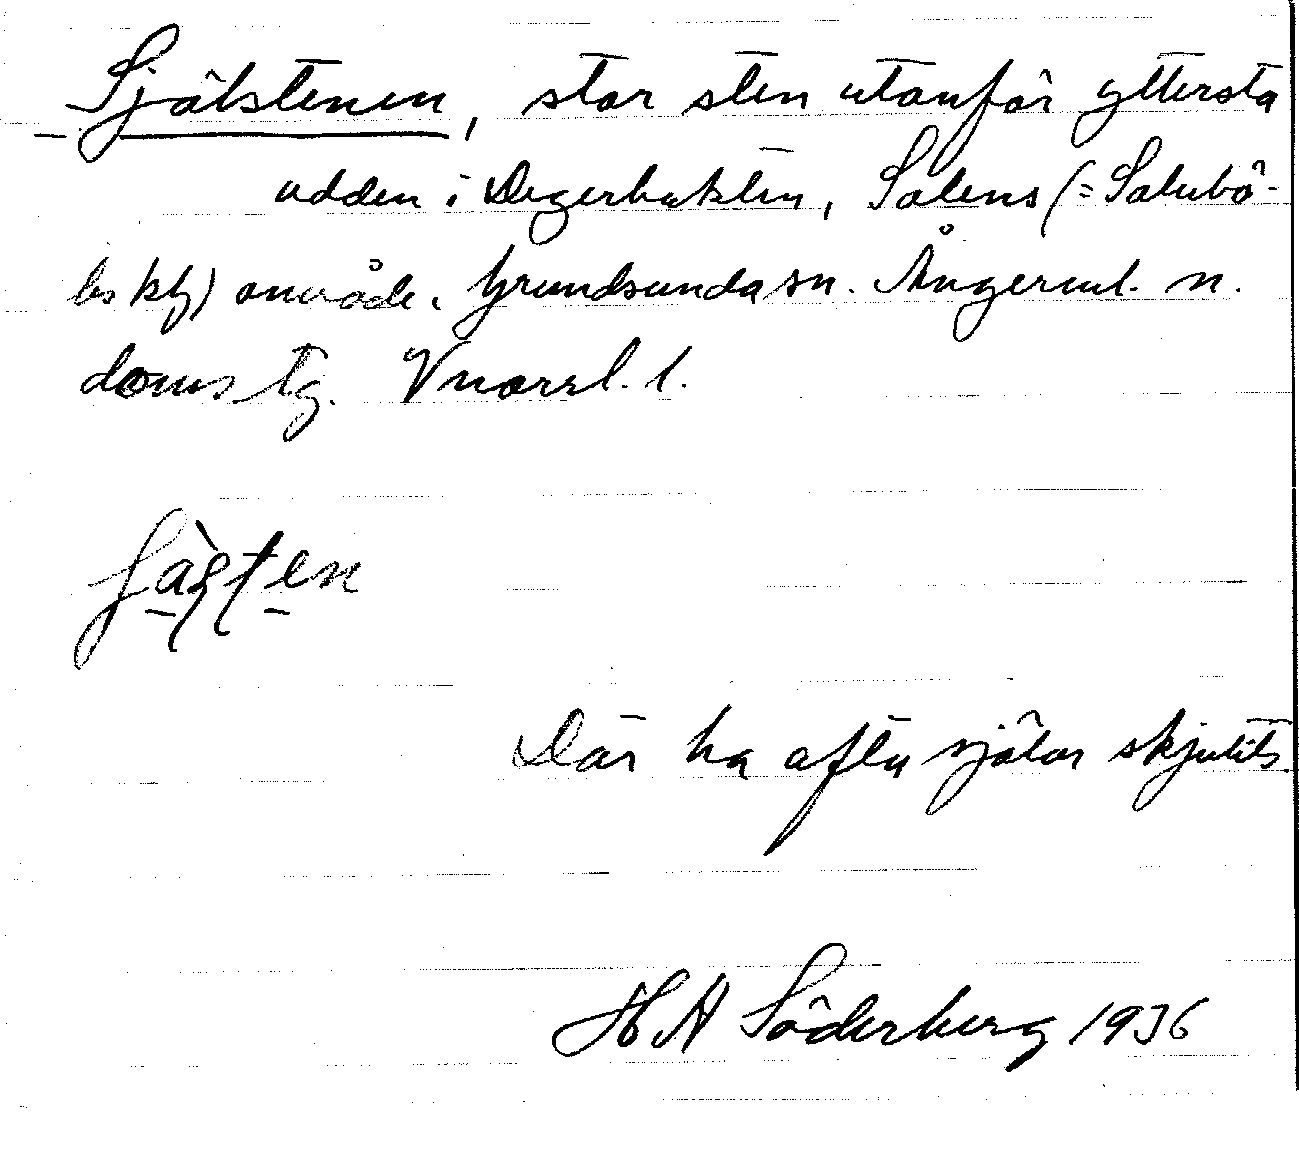 Själstenen, stor sten utanför yttersta
udden i Degerbukten, Salens (= Salubö-
les kbf) område. Grundsunda sn. Ångerml. n.
doms tg. Vnorrl. l.
Där ha ofta själar skjutits
H A Söderberg 1936